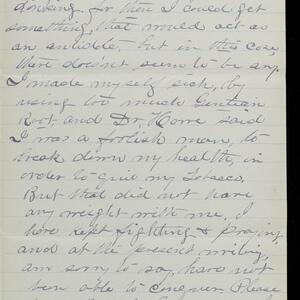 donking. for then I could get
something, that would act as
an antidote. but in this case
there doesn't seem to be any.
I made myself sick, by
using too much Gentian
Root, and Dr. Howe said
I was a foolish man, to
break down my health, in
order to quit my Tobacco.
But that did not have
any weight with me. I
have kept fighting & praying
and at the present writing,
am sorry to say, have not
been able to conquer. Please